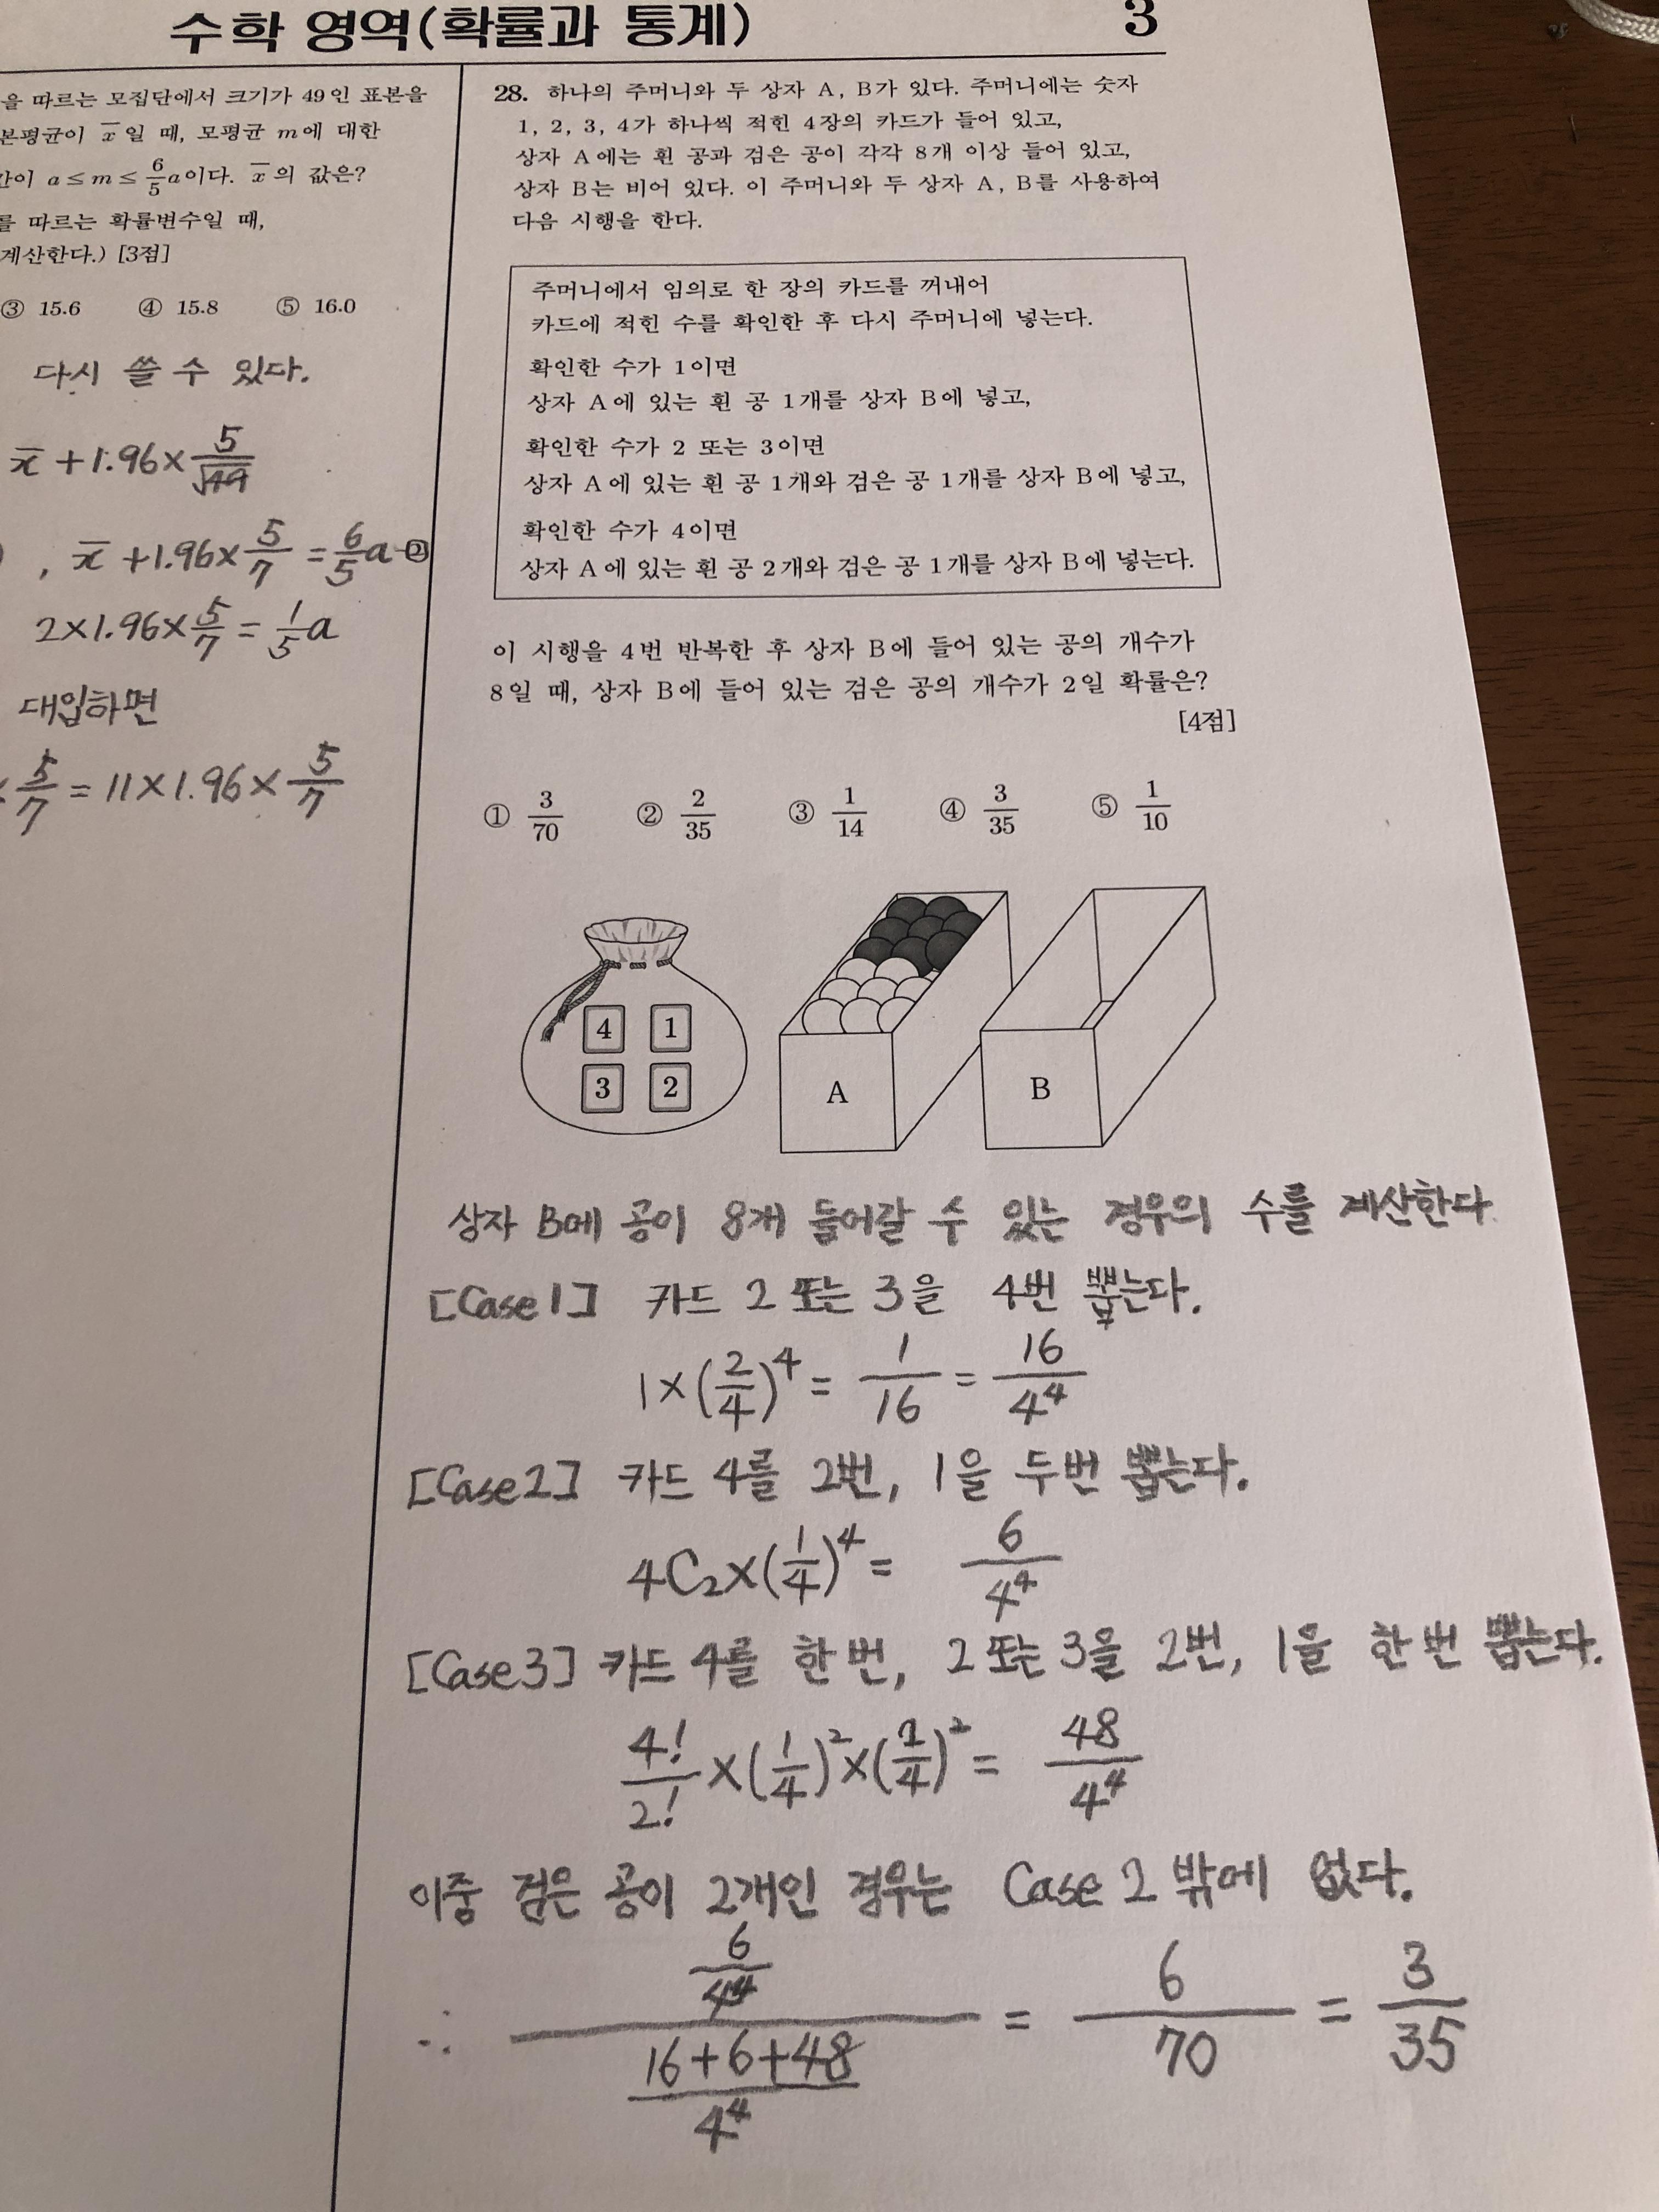 수학 영역(확률과 통계)
3
을 따르는 모집단에서 크기가 49인 표본을
본평균이 x̄일 때, 모평균 m에 대한
간이 a≤m≤6/5a이다. x̄의 값은?
를 따르는 확률변수일 때,
계산한다.) [3점]
③ 15.6 ④ 15.8 ⑤ 16.0
다시 쓸 수 있다.
x̄+1.96×5/√49
, x̄+1.96×5/7=6/5a-②
2×1.96×5/7=1/5a
대입하면
×5/7=11×1.96×5/7
28. 하나의 주머니와 두 상자 A, B가 있다. 주머니에는 숫자
1, 2, 3, 4가 하나씩 적힌 4장의 카드가 들어 있고,
상자 A에는 흰 공과 검은 공이 각각 8개 이상 들어 있고,
상자 B는 비어 있다. 이 주머니와 두 상자 A, B를 사용하여
다음 시행을 한다.
주머니에서 임의로 한 장의 카드를 꺼내어
카드에 적힌 수를 확인한 후 다시 주머니에 넣는다.
확인한 수가 1이면
상자 A에 있는 흰 공 1개를 상자 B에 넣고,
확인한 수가 2 또는 3이면
상자 A에 있는 흰 공 1개와 검은 공 1개를 상자 B에 넣고,
확인한 수가 4이면
상자 A에 있는 흰 공 2개와 검은 공 1개를 상자 B에 넣는다.
이 시행을 4번 반복한 후 상자 B에 들어 있는 공의 개수가
8일 때, 상자 B에 들어 있는 검은 공의 개수가 2일 확률은?
[4점]
① 3/70 ② 2/35 ③ 1/14 ④ 3/35 ⑤ 1/10
4 1
3 2
A B
상자 B에 공이 8개 들어갈 수 있는 경우의 수를 계산한다.
[Case1] 카드 2 또는 3을 4번 뽑는다.
1×(2/4)^4=1/16=16/4^4
[Case2] 카드 4를 2번, 1을 두번 뽑는다.
4C2×(1/4)^4=6/4^4
[Case3] 카드 4를 한 번, 2 또는 3을 2번, 1을 한 번 뽑는다.
4!/2!×(1/4)^2×(2/4)^2=48/4^4
이중 검은 공이 2개인 경우는 Case 2 밖에 없다.
∴ (6/4^4)/((16+6+48)/4^4)=6/70=3/35